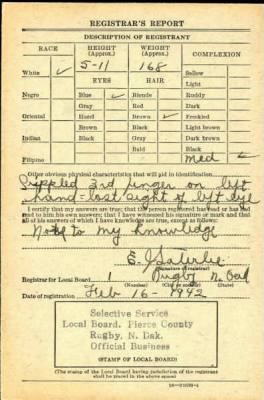 REGISTRAR'S REPORT
DESCRIPTION OF REGISTRANT
RACE HEIGHT (Approx.) WEIGHT (Approx.) COMPLEXION
White ✓ 5-11 168 Sallow
EYES HAIR Light
Negro Blue ✓ Blonde Ruddy
Gray Red Dark
Oriental Hazel Brown ✓ Freckled
Brown Black Light brown
Indian Black Gray Dark brown
Bald Black
Filipino Med ✓
Other obvious physical characteristics that will aid in identification
Crippled 3rd finger on left
hand = lost sight of left eye
I certify that my answers are true; that the person registered has read or has had
read to him his own answers; that I have witnessed his signature or mark and that
all of his answers of which I have knowledge are true, except as follows:
Not to my knowledge
(Signature of registrar)
Registrar for Local Board 1 Rugby N. Dak
(Number) (City or county) (State)
Date of registration Feb 16 - 1942
Selective Service
Local Board, Pierce County
Rugby, N. Dak.
Official Business
(STAMP OF LOCAL BOARD)
(The stamp of the Local Board having jurisdiction of the registrant
shall be placed in the above space.)